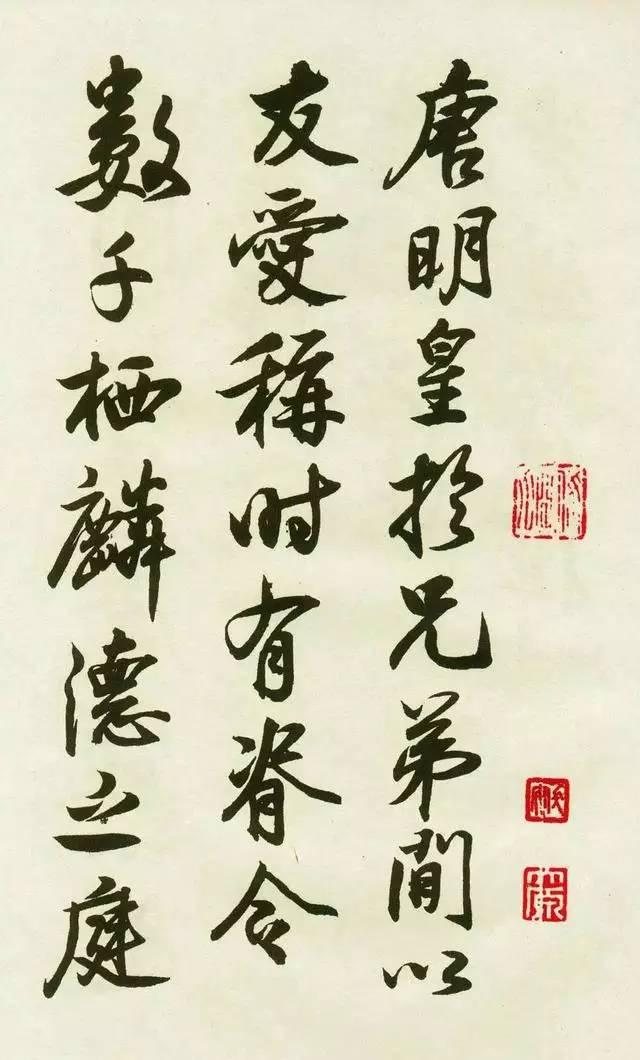 唐明皇於兄弟間以
友愛稱时有脊令
数千栖麟德之庭